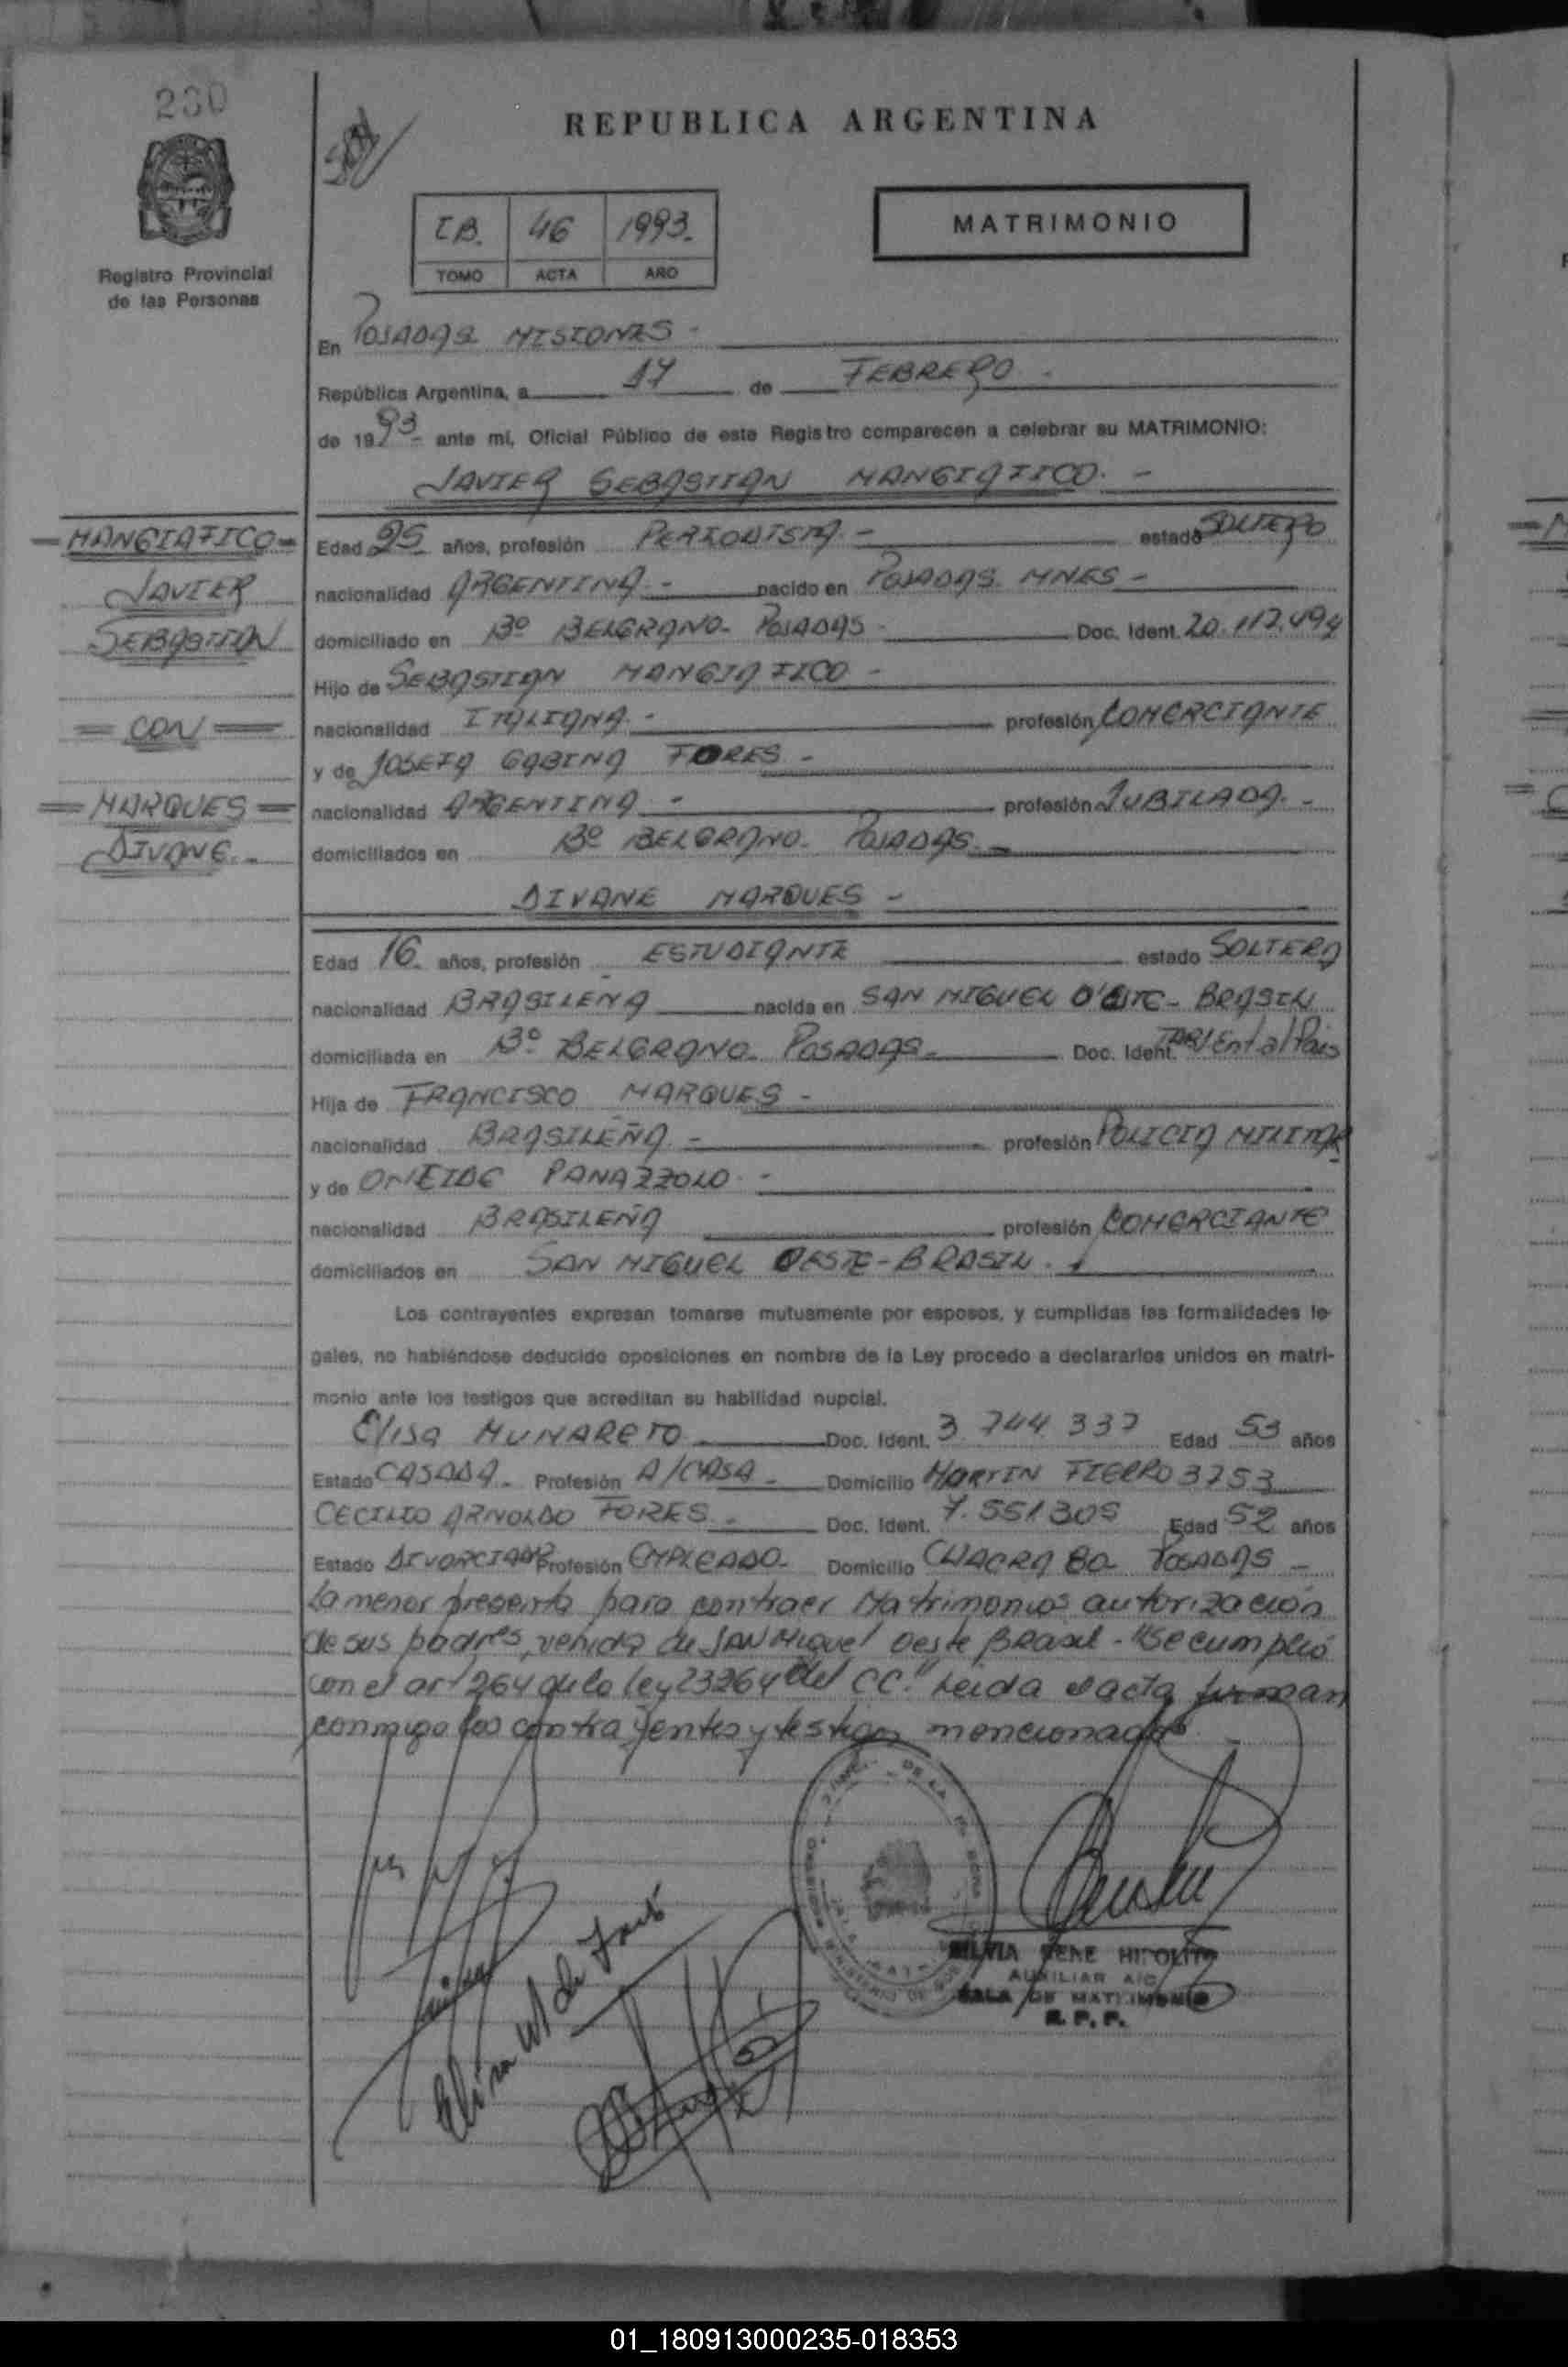 230
REPUBLICA ARGENTINA
I B. 46 1993.
TOMO ACTA AÑO
MATRIMONIO
Registro Provincial
de las Personas
En POSADAS MISIONES -
República Argentina, a 17 de FEBRERO -
de 1993 ante mí, Oficial Público de este Registro comparecen a celebrar su MATRIMONIO:
JAVIER SEBASTIAN MANGIAFICO. -
= MANGIAFICO =
JAVIER
SEBASTIAN
= CON =
= MARQUES =
DIVANE -
Edad 25 años, profesión PERIODISTA - estado SOLTERO
nacionalidad ARGENTINA - nacido en POSADAS MNES -
domiciliado en Bº BELGRANO - POSADAS - Doc. Ident. 20.117.494
Hijo de SEBASTIAN MANGIAFICO -
nacionalidad ITALIANA - profesión COMERCIANTE
y de JOSEFA GABINA FORES -
nacionalidad ARGENTINA - profesión JUBILADA. -
domiciliados en Bº BELGRANO - POSADAS. -
DIVANE MARQUES -
Edad 16 años, profesión ESTUDIANTE estado SOLTERA
nacionalidad BRASILEÑA nacida en SAN MIGUEL O'ESTE - BRASIL
domiciliada en Bº BELGRANO - POSADAS - Doc. Ident. TARJ Ent al Pais
Hija de FRANCISCO MARQUES -
nacionalidad BRASILEÑA - profesión POLICIA MILITAR
y de ONEIDE PANAZZOLO -
nacionalidad BRASILEÑA profesión COMERCIANTE
domiciliados en SAN MIGUEL OESTE - BRASIL.
Los contrayentes expresan tomarse mutuamente por esposos, y cumplidas las formalidades le-
gales, no habiéndose deducido oposiciones en nombre de la Ley procedo a declararlos unidos en matri-
monio ante los testigos que acreditan su habilidad nupcial.
Elisa MUNARETO Doc. Ident. 3 744 337 Edad 53 años
Estado CASADA - Profesión A/CASA - Domicilio MARTIN FIERRO 3753
CECILIO ARNOLDO FORES - Doc. Ident. 7.551309 Edad 52 años
Estado DIVORCIADO Profesión EMPLEADO - Domicilio CHACRA 80 - POSADAS -
La menor presenta para contraer Matrimonio autorización
de sus padres, venida de SAN Miguel Oeste BRasil - "Se cumplió
con el art 264 de la ley 23264 del CC." Leida el acta firman
conmigo los contrayentes y testigos mencionados.
Elisa M de Fores
SILVIA RENE HIPOLITO
AUXILIAR A/C
SALA DE MATRIMONIO
R. P. P.
01_180913000235-018353